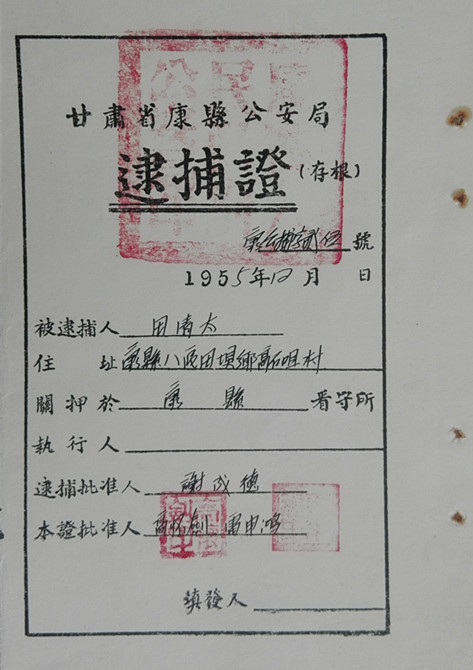 甘肅省康縣公安局
逮捕證(存根)
號
1955年12月 日
被逮捕人 田清太
住 址 康縣八區田壩鄉高咀村
關押於 康縣 看守所
執行人
逮捕批准人 謝成德
本證批准人 雷申鴻
填發人